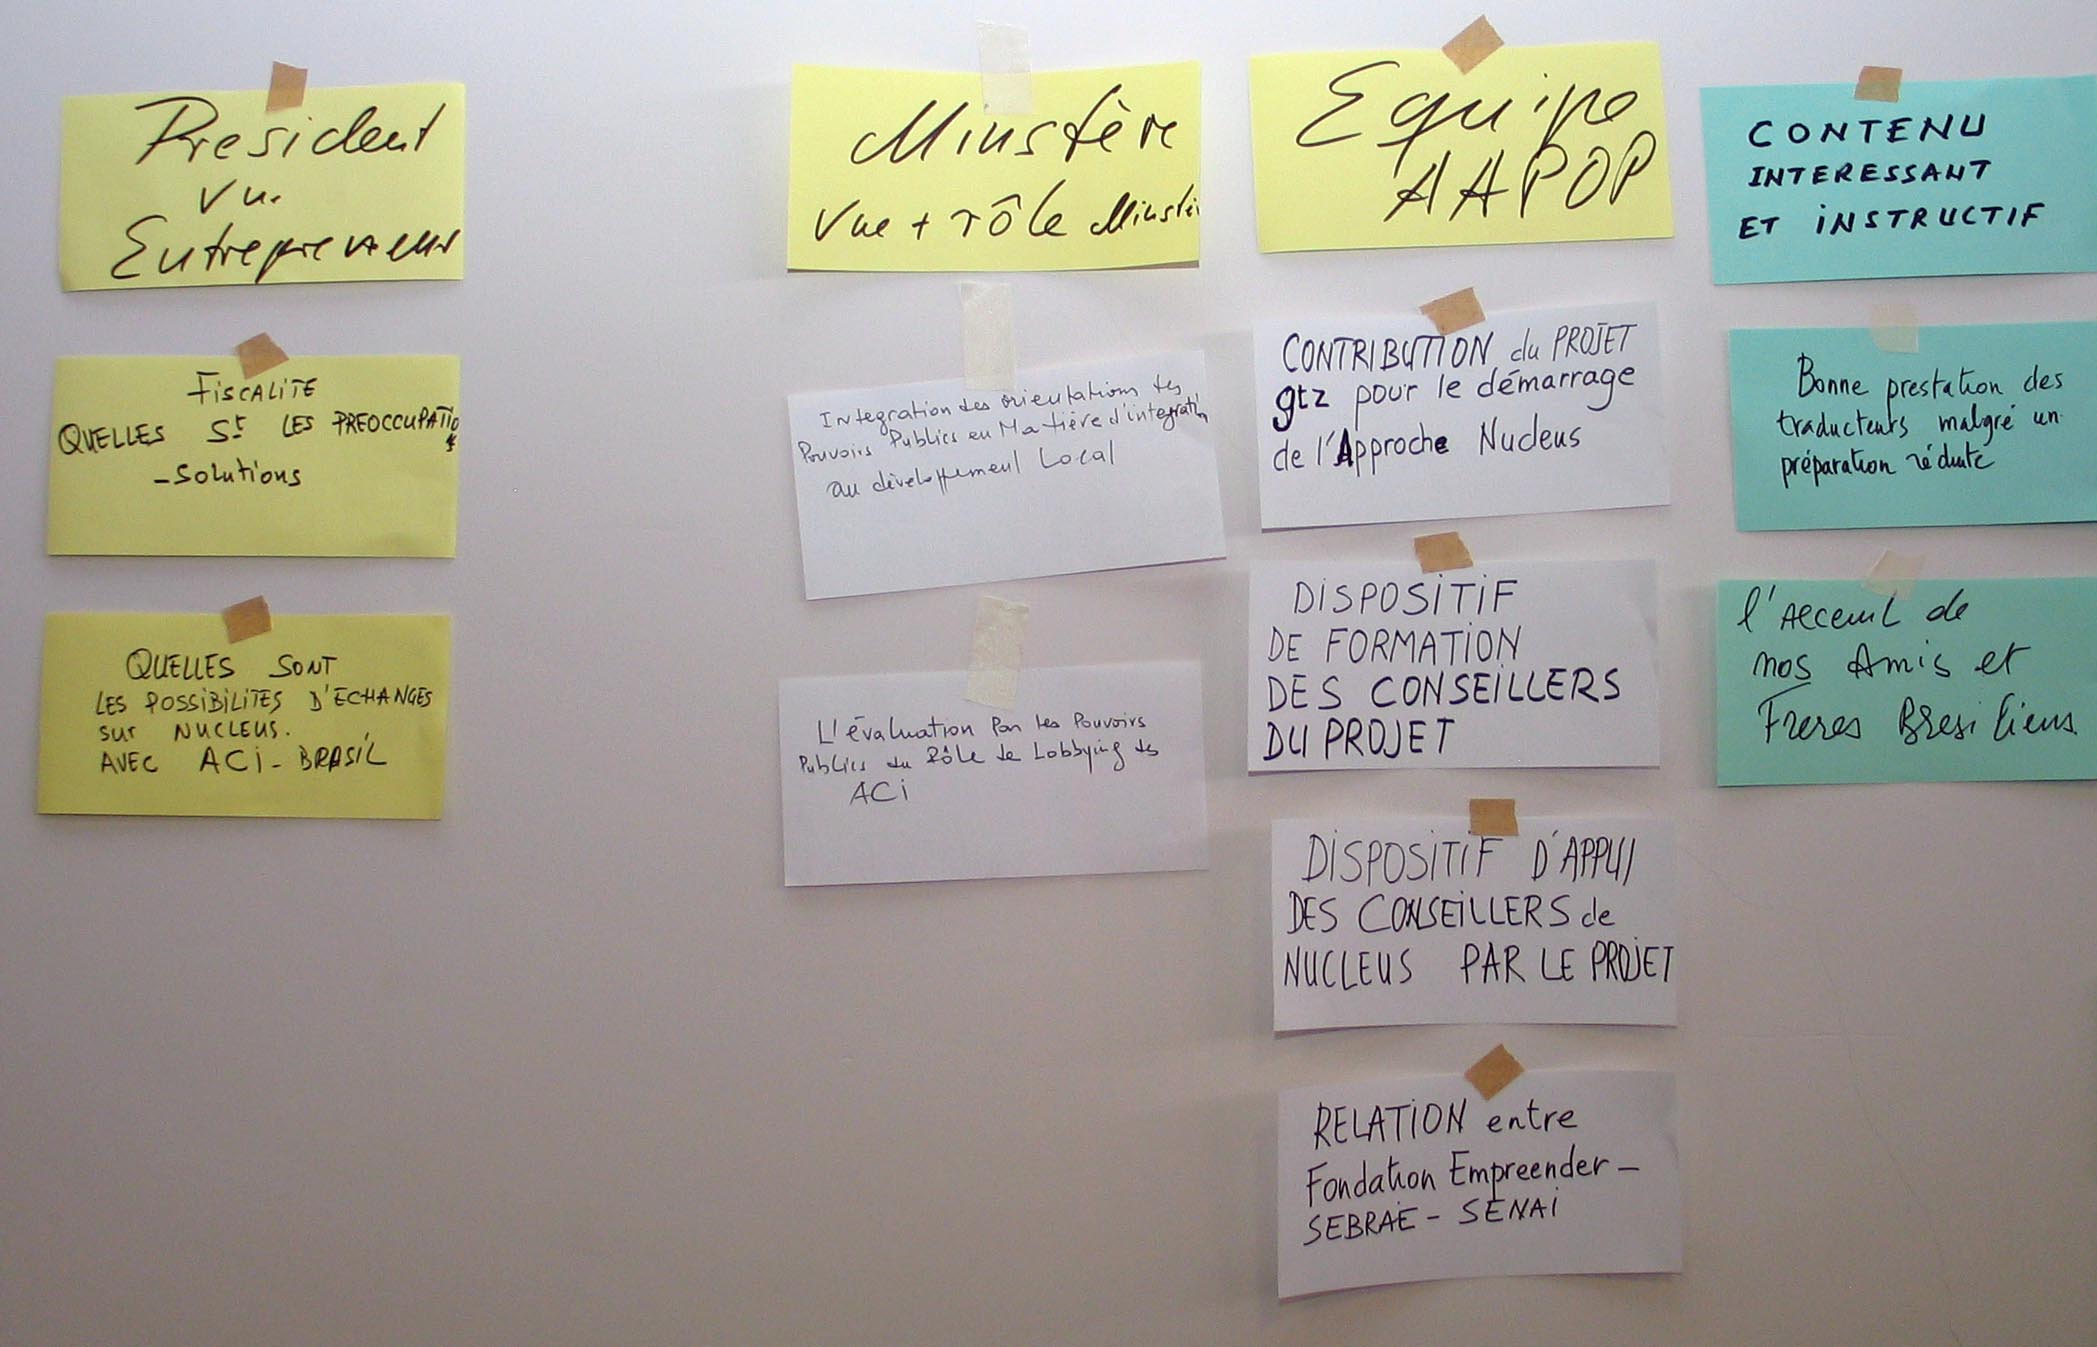 President
vue
Entrepreneur
FISCALITE
QUELLES St LES PREOCCUPATIOS
- Solutions
QUELLES SONT
LES POSSIBILITES D'ECHANGES
SUR NUCLEUS.
AVEC ACI - BRASIL
Minstère
Vue + rôle Minstè
Integration des orientations des
Pouvoirs Publics en Matière d'integration
au dévelopement Local
L'évaluation Par les Pouvoirs
Publics du Rôle de Lobbying des
ACI
Equipe
AAPOP
CONTRIBUTION du PROJET
gtz pour le démarrage
de l'Approche Nucleus
DISPOSITIF
DE FORMATION
DES CONSEILLERS
DU PROJET
DISPOSITIF D'APPUI
DES CONSEILLERS de
NUCLEUS PAR LE PROJET
RELATION entre
Fondation Empreender -
SEBRAE - SENAI
CONTENU
INTERESSANT
ET INSTRUCTIF
Bonne prestation des
traducteurs malgré un
préparation réduite
l'Acceuil de
nos Amis et
Freres Bresiliens